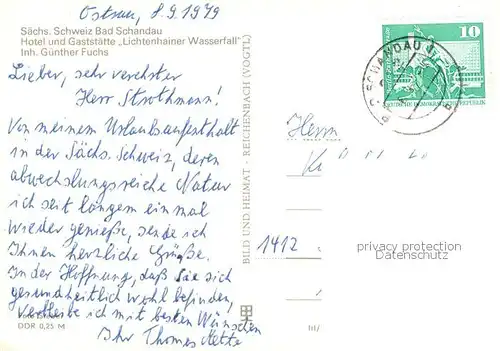 Ostrau, 8.9.1979
Sächs. Schweiz Bad Schandau
Hotel und Gaststätte „Lichtenhainer Wasserfall"
Inh. Günther Fuchs
Lieber, sehr verehrter
Herr Strothmann!
Von meinem Urlaubsaufenthalt
in der Sächs. Schweiz, deren
abwechslungsreiche Natur
ich seit langem einmal
wieder genieße, sende ich
Ihnen herzliche Grüße.
In der Hoffnung, daß Sie sich
gesundheitlich wohl befinden,
verbleibe ich mit besten Wünschen
Ihr Thomas
DDR 0,25 M
BILD UND HEIMAT - REICHENBACH (VOGTL)
10
DEUTSCHE DEMOKRATISCHE REPUBLIK
SCHANDAU
Herrn
1412
privacy protection
Datenschutz
III/